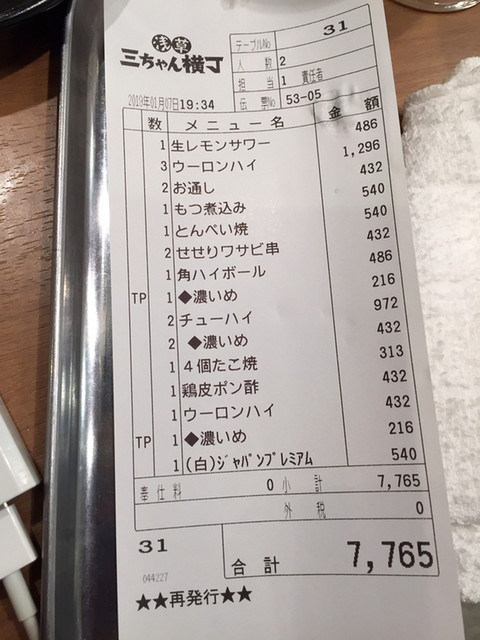 浅草
三ちゃん横丁
テーブルNo 31
人数 2
担当 1 責任者
2019年01月07日19:34
伝票No 53-05
数 メニュー名 金額
1 生レモンサワー 486
3 ウーロンハイ 1,296
2 お通し 432
1 もつ煮込み 540
1 とんぺい焼 540
2 せせりワサビ串 432
1 角ハイボール 486
TP 1 ◆濃いめ 216
2 チューハイ 972
2 ◆濃いめ 432
1 4個たこ焼 313
1 鶏皮ポン酢 432
1 ウーロンハイ 432
TP 1 ◆濃いめ 216
1 (白)ジャパンプレミアム 540
奉仕料 0 小計 7,765
外税 0
31
044227
合計 7,765
★★再発行★★